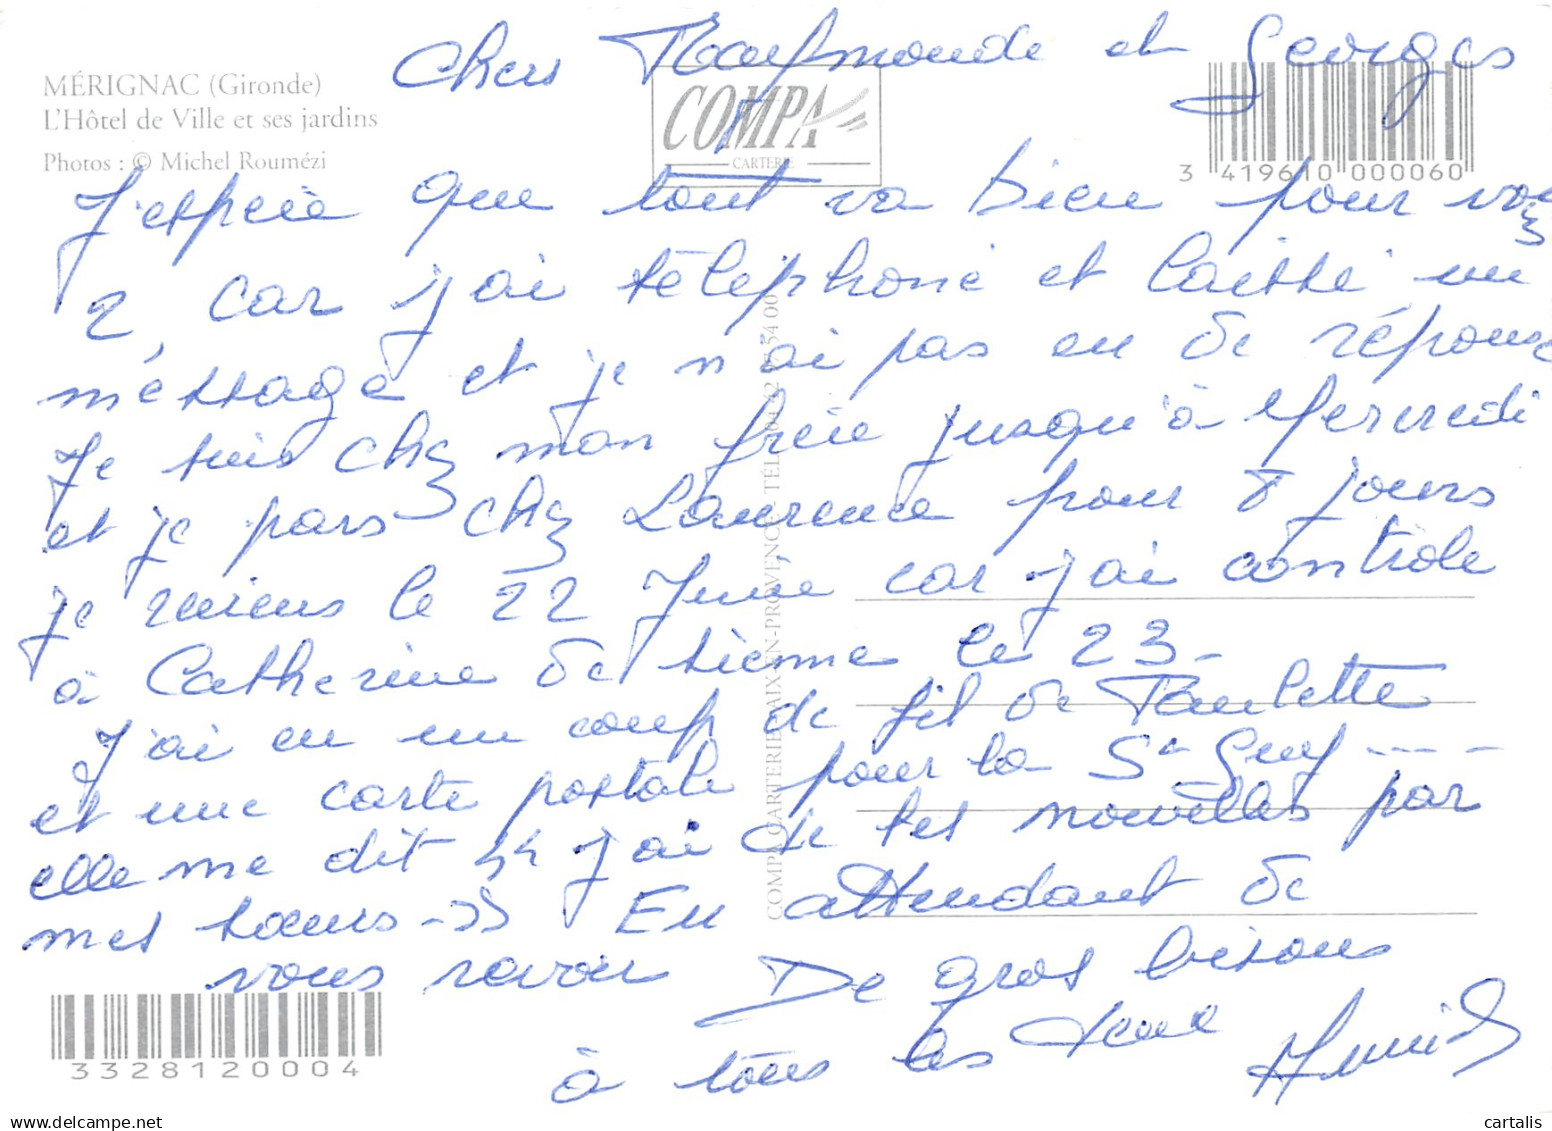 MÉRIGNAC (Gironde)
L'Hôtel de Ville et ses jardins
Photos : © Michel Roumézi
COMPA
CARTERIE
3 419610 000060
Chers Raymonde et Georges
J'espère que tout va bien pour vous
2, car j'ai téléphoné et laissé un
méssage et je n'ai pas eu de réponse
Je suis chez mon frère jusqu'à Mercredi
et je pars chez Laurence pour 8 jours
je reviens le 22 Juin car j'ai contrôle
à Catherine de sienne le 23-
J'ai eu un coup de fil de Paulette
et une carte postale pour la St Guy ----
elle me dit « j'ai de tes nouvelles par
mes sœurs -» En attendant de
vous revoir De gros bisous
à tous les deux
COMPA CARTERIE AIX-EN-PROVENCE TÉL.
3328120004
cartalis